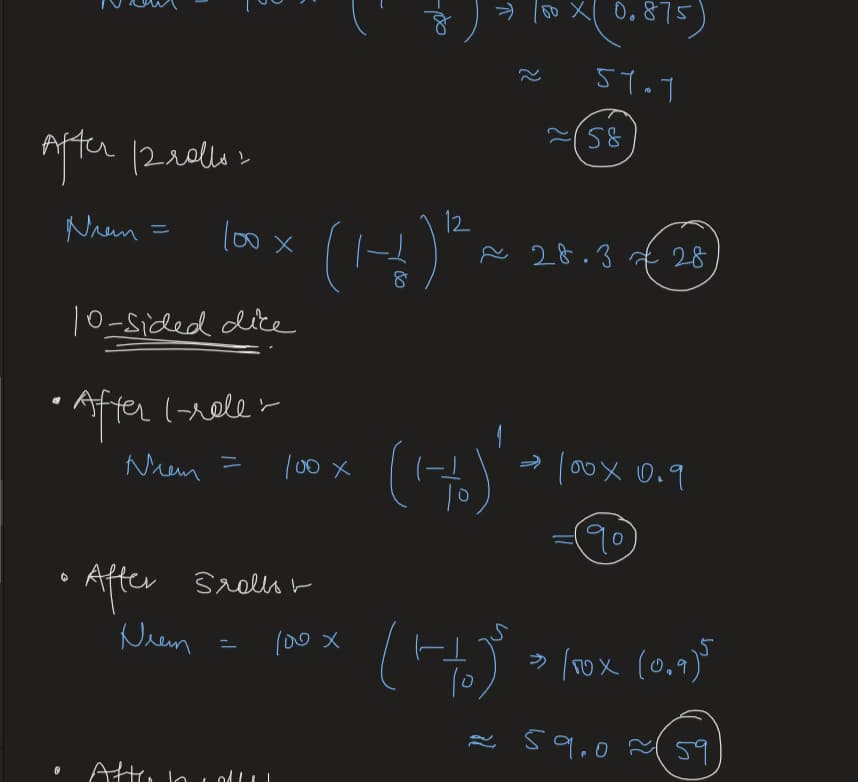 Nrem = 100 × (1-1/8) ⇒ 100 × (0.875)
≈ 57.7
≈ 58
After 12 rolls:
Nrem = 100 × (1-1/8)^12 ≈ 28.3 ≈ 28
10-sided dice
• After 1-roll:
Nrem = 100 × (1-1/10)^1 ⇒ 100 × 0.9
= 90
• After 5 rolls:
Nrem = 100 × (1-1/10)^5 ⇒ 100 × (0.9)^5
≈ 59.0 ≈ 59
• After